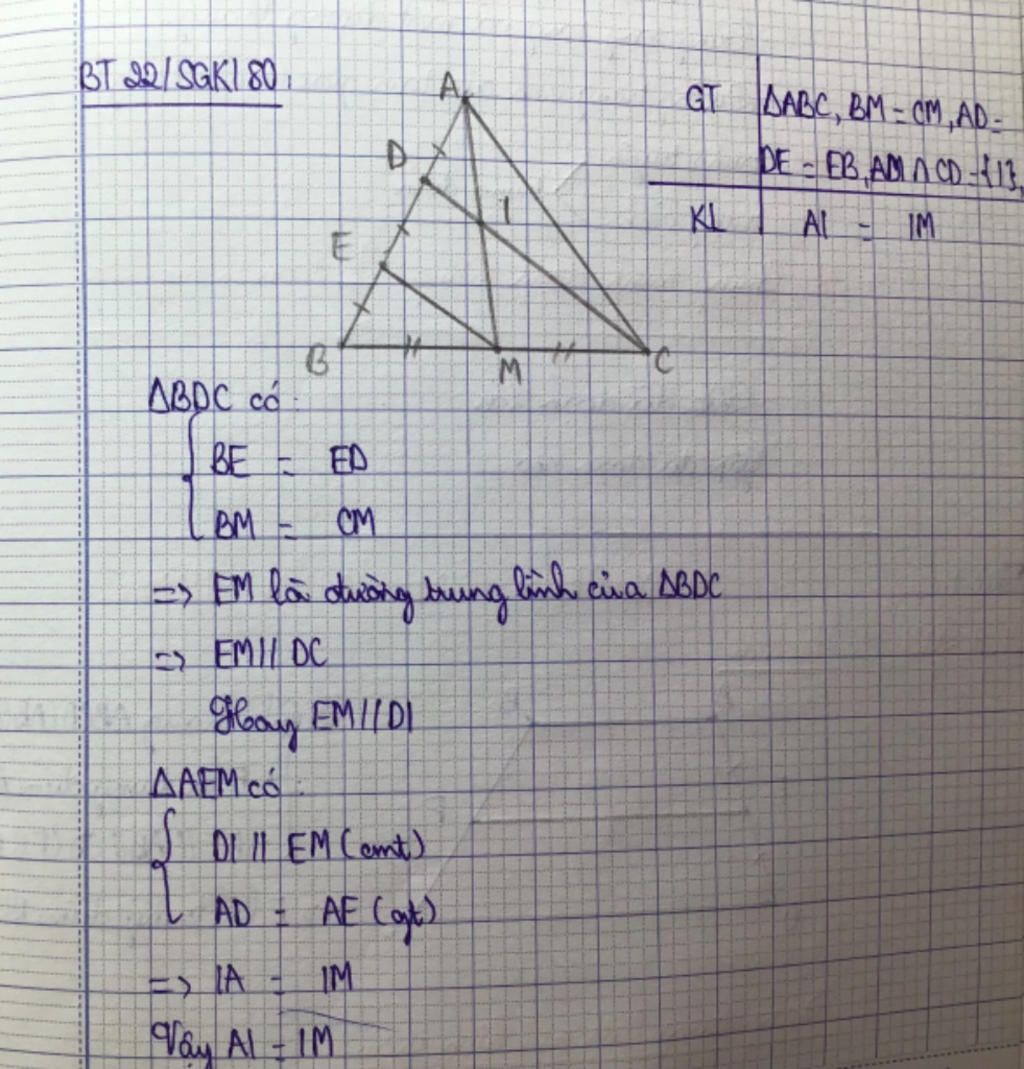 BT 22/SGK/80:
GT ΔABC, BM = CM, AD =
DE = EB, AM ∩ CD = {I},
KL AI = IM
A
D
I
E
B M C
ΔBDC có:
BE = ED
BM = CM
=> EM là đường trung bình của ΔBDC
=> EM // DC
Hay EM // DI
ΔAEM có:
DI // EM (cmt)
AD = AE (gt)
=> IA = IM
Vậy AI = IM